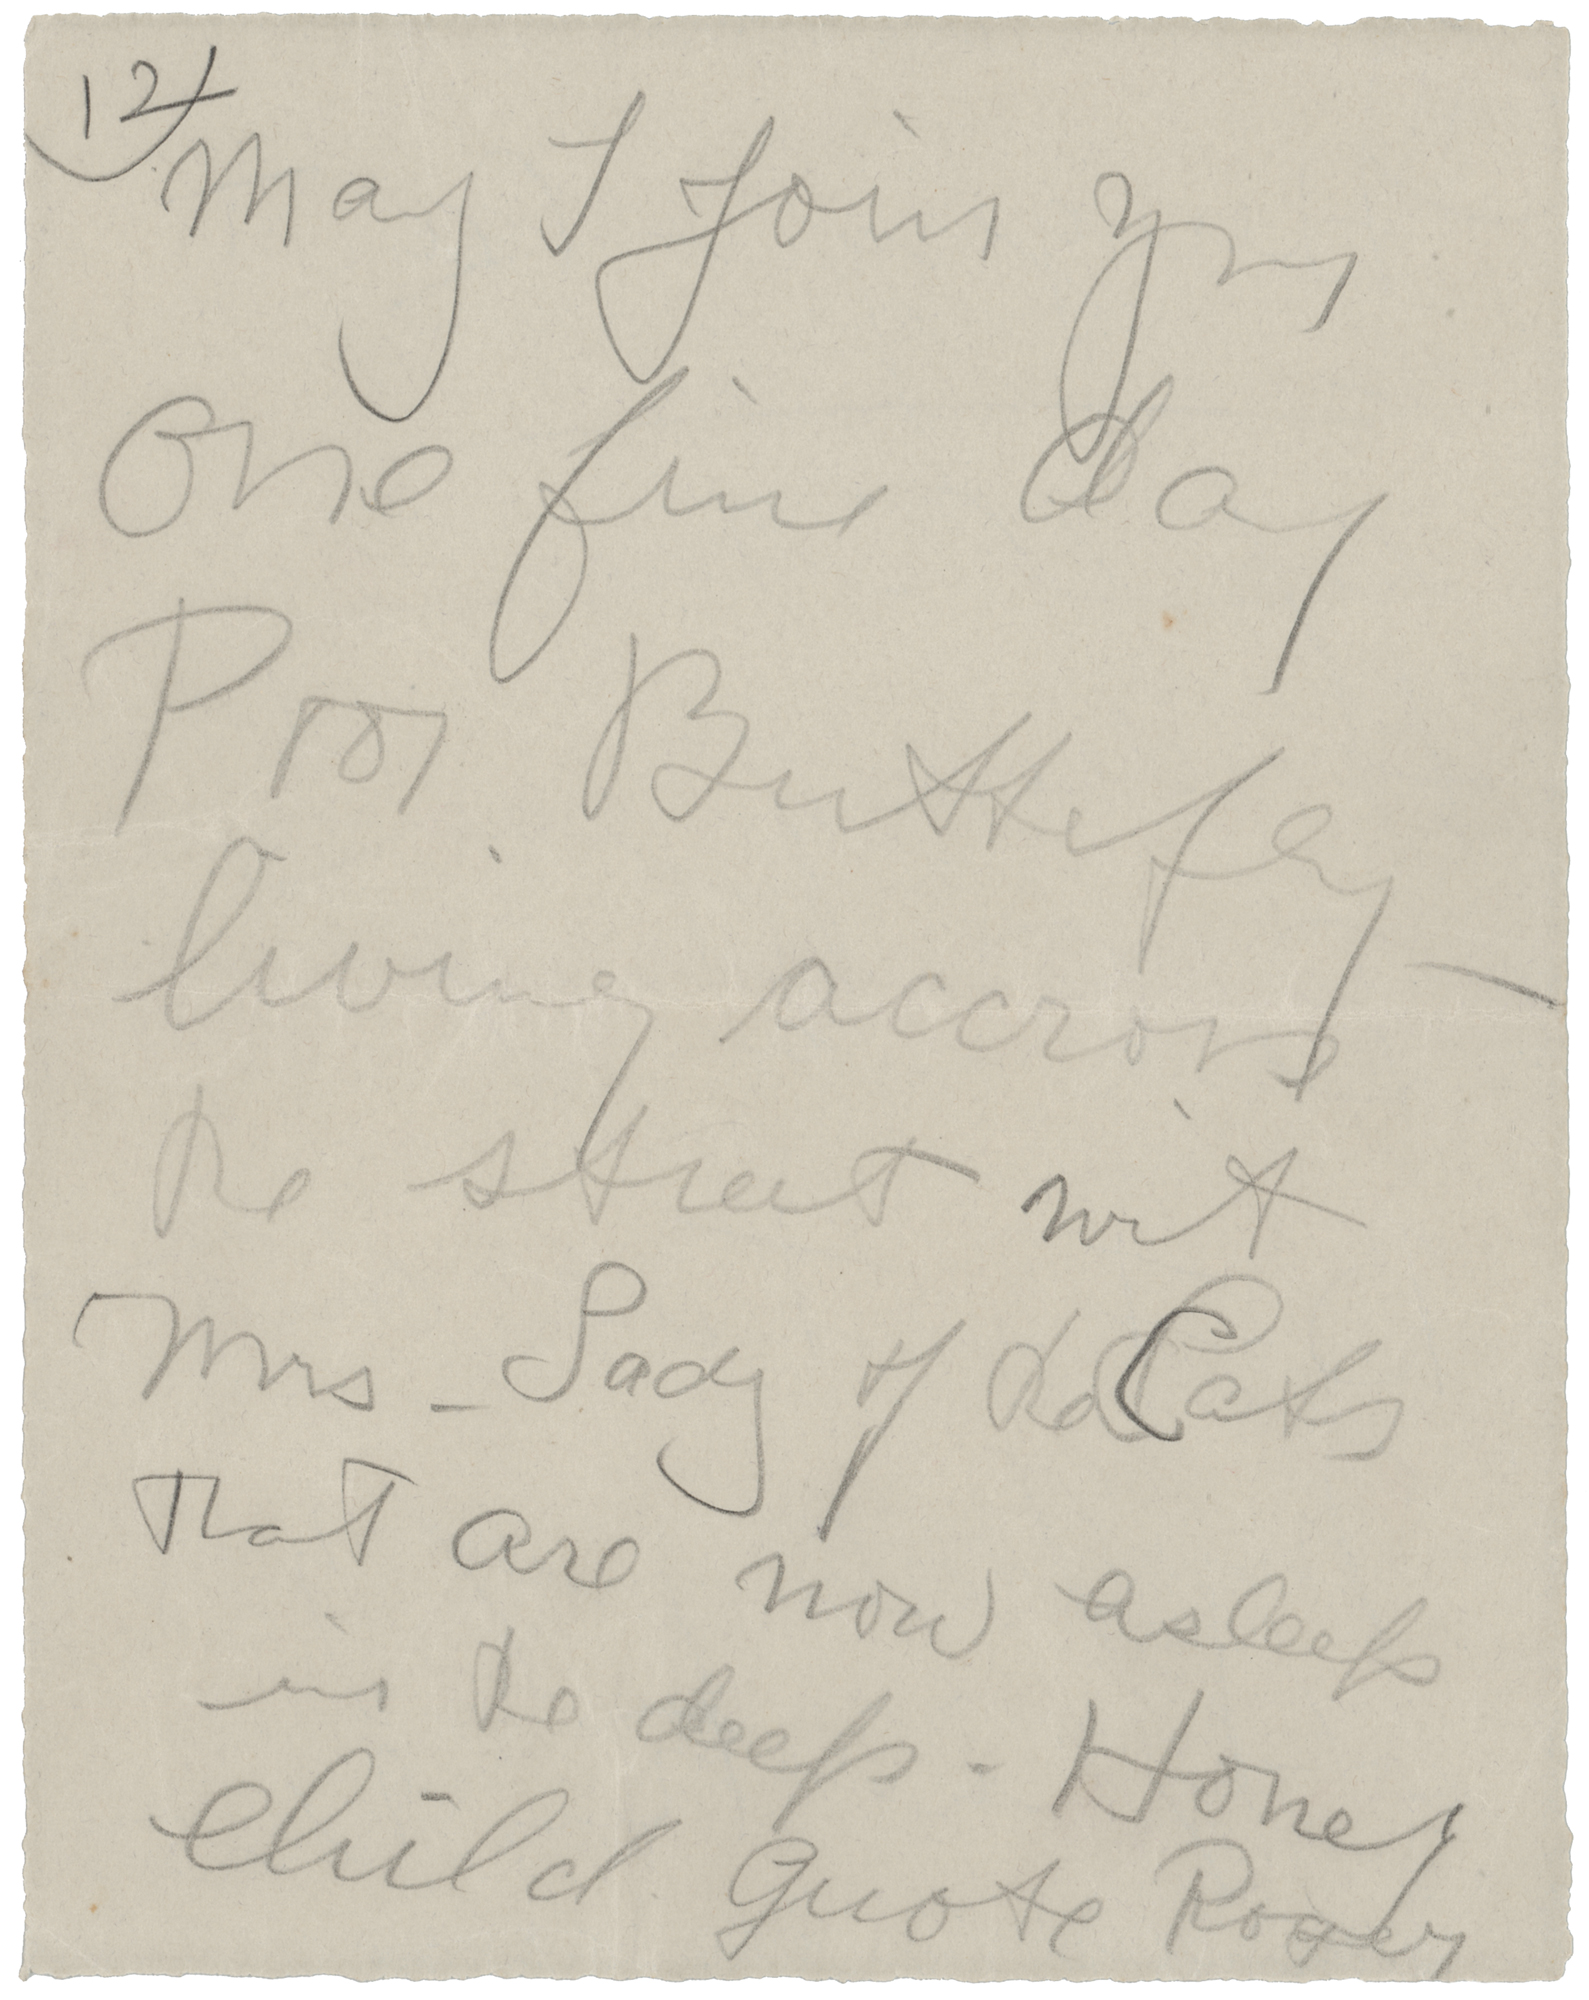 12
May I join you
One fine day
Poor Butterfly —
living accross
the street wit
Mrs - Lady of the Cats
that are now asleep
in the deep - Honey
child quote Roxey